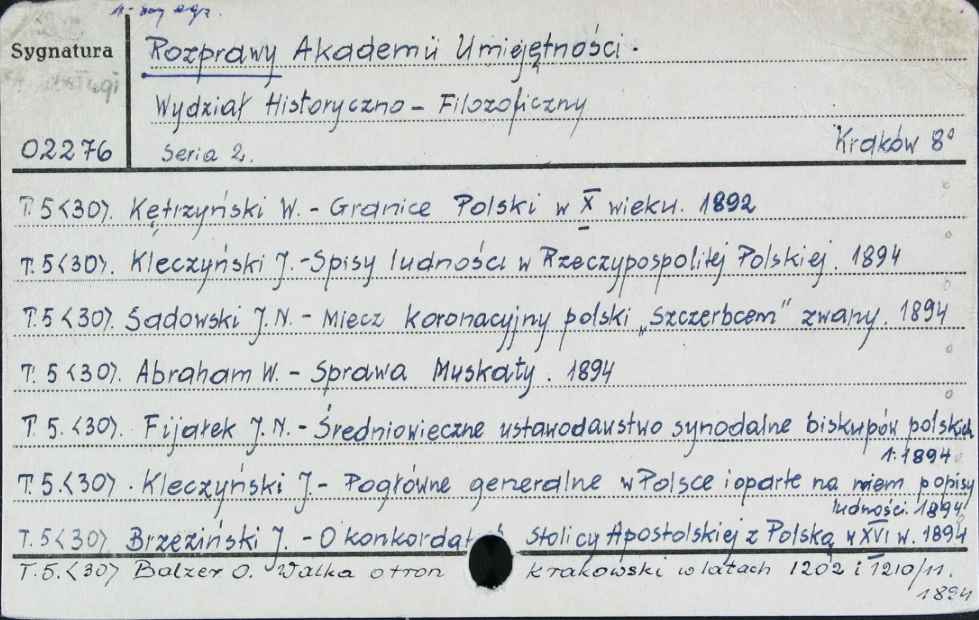 Sygnatura
02276
Rozprawy Akademii Umiejętności.
Wydział Historyczno - Filozoficzny
Seria 2. Kraków 8°
T. 5 <30>. Kętrzyński W. - Granice Polski w X wieku. 1892
T. 5 <30>. Kleczyński J. - Spisy ludności w Rzeczypospolitej Polskiej. 1894
T. 5 <30>. Sadowski J. N. - Miecz koronacyjny polski „Szczerbcem" zwany. 1894
T. 5 <30>. Abraham W. - Sprawa Muskaty. 1894
T. 5. <30>. Fijałek J. N. - Średniowieczne ustawodawstwo synodalne biskupów polskich
1894
T. 5. <30>. Kleczyński J. - Pogłówne generalne w Polsce i oparte na niem popisy
ludności. 1894
T. 5 <30> Brzeziński J. - O konkordat Stolicy Apostolskiej z Polską w XVI w. 1894
T. 5. <30> Balzer O. Walka o tron Krakowski w latach 1202 i 1210/11.
1894